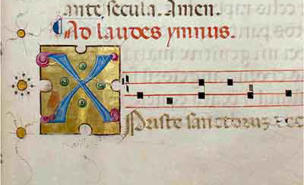 ante secula. Amen.
Ad laudes ymnus.
X
p̄riste sanctorum